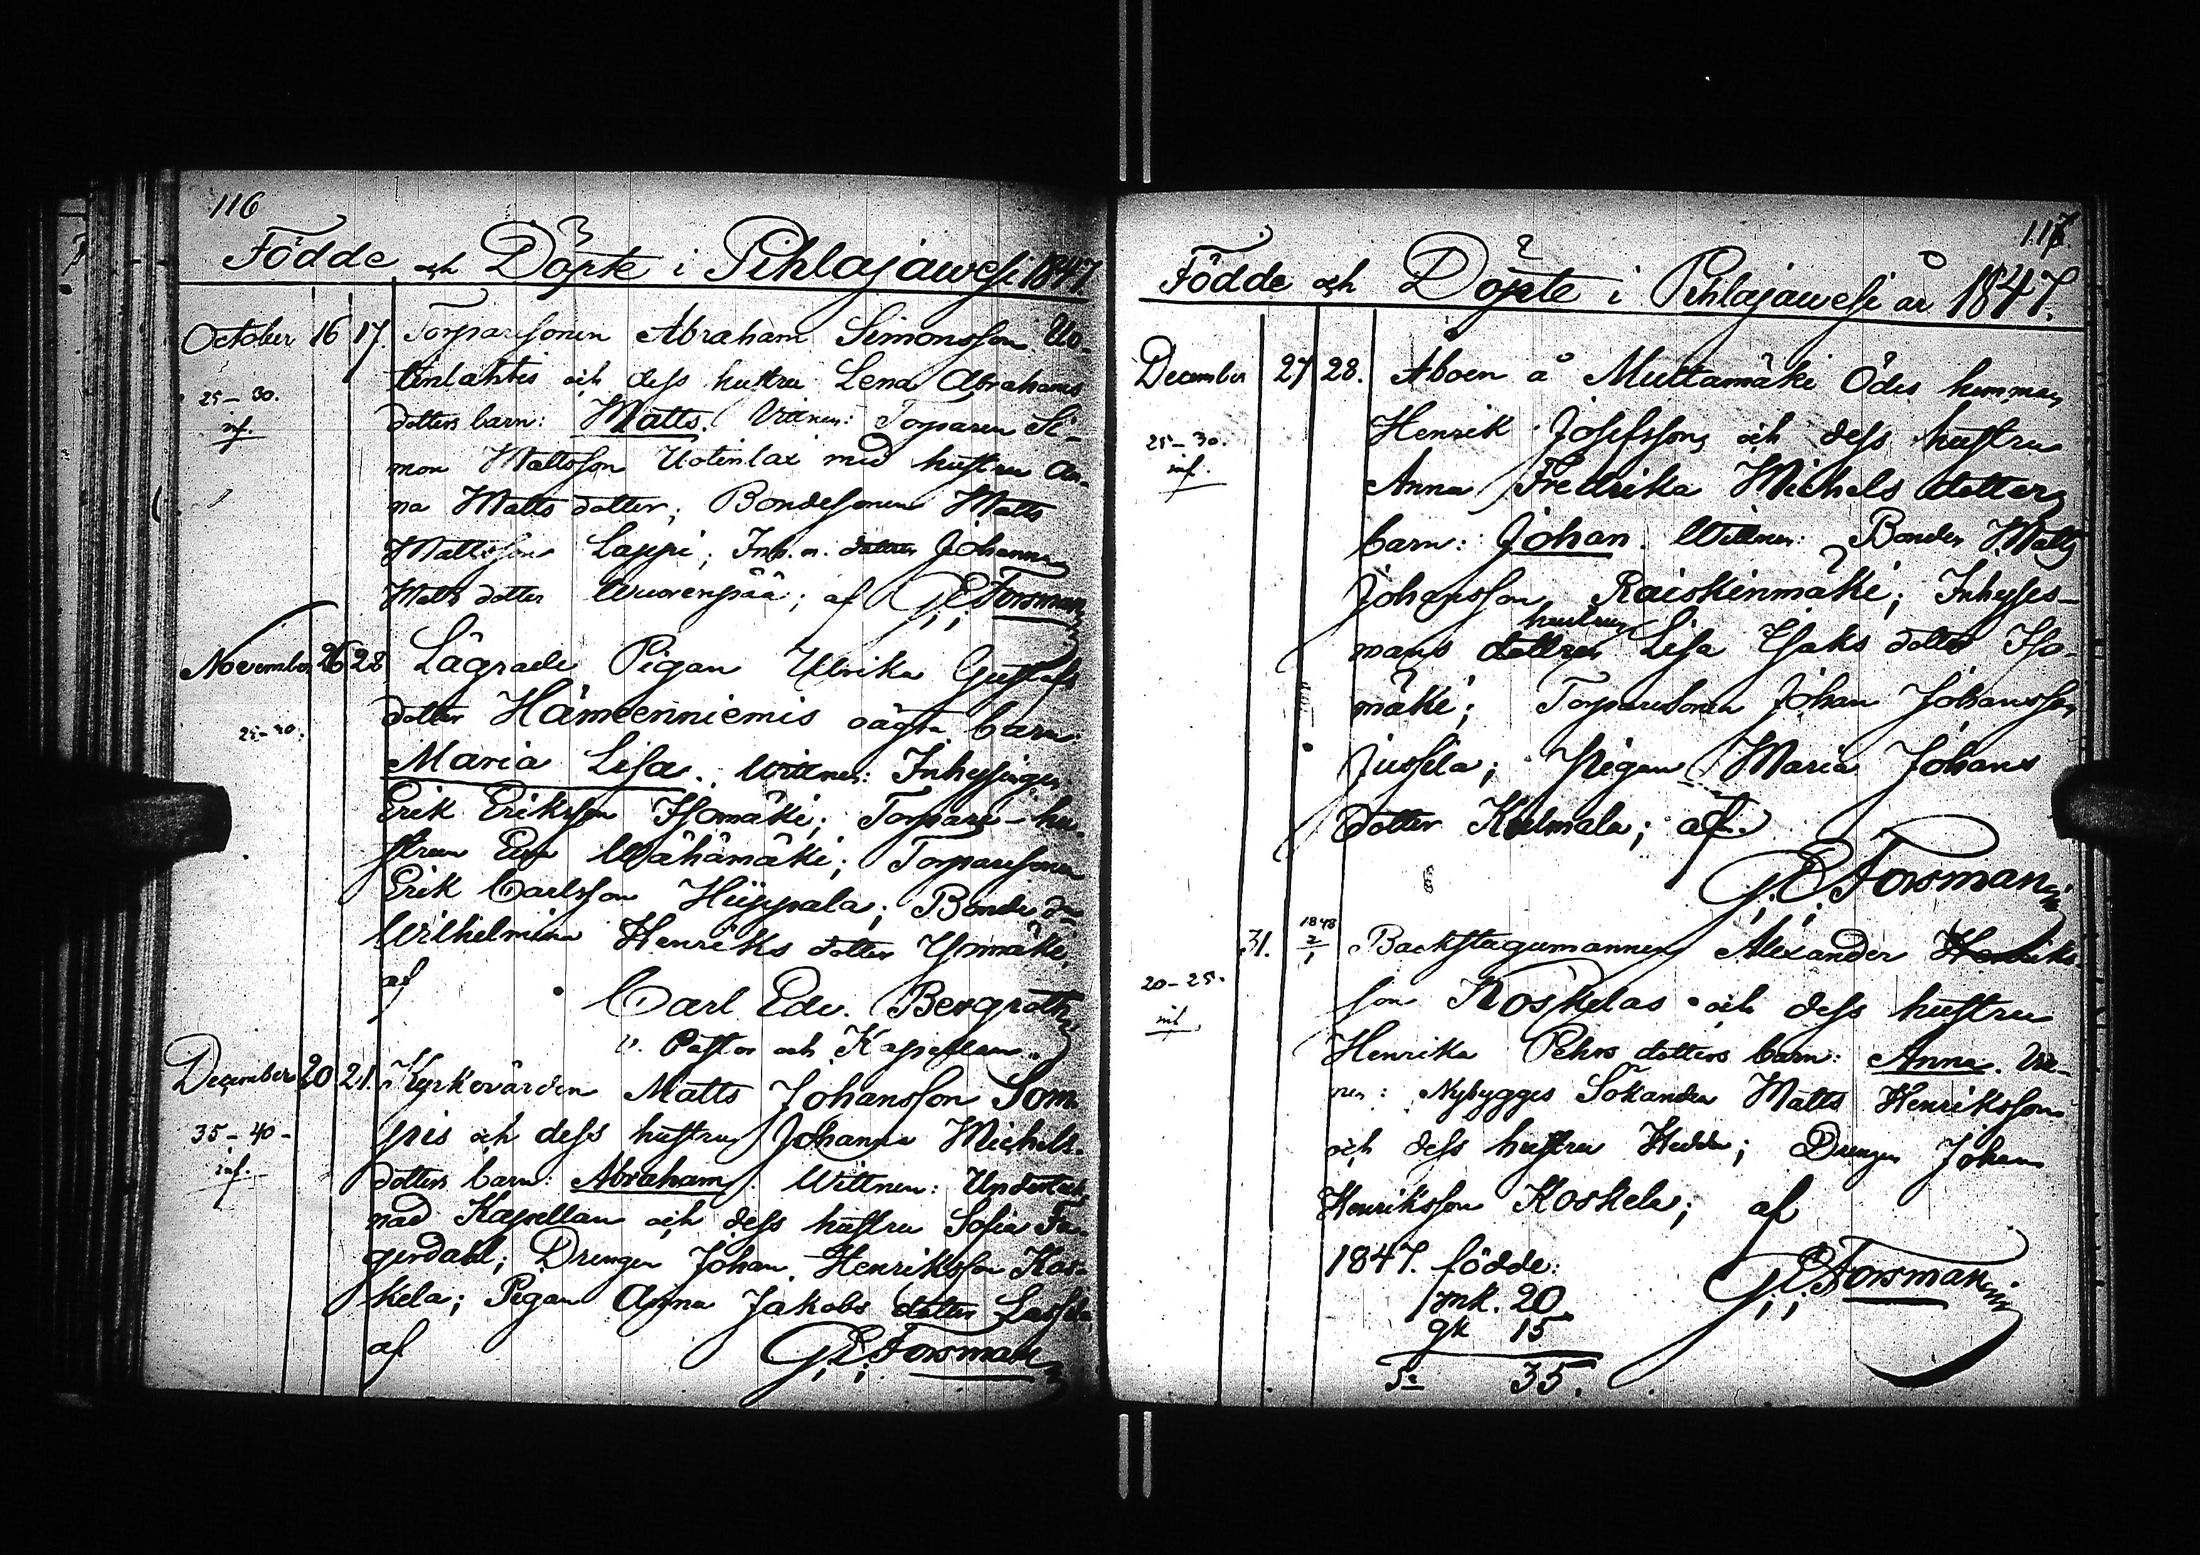 116
Födde och Döpte i Pihlajawesi 1847.
October 16 17. Torparesonen Abraham Simonsson Uo-
tinlahtis och dess hustru Lena Abrahams
25-30. dotters barn: Matts. Vittnen: Torparen Si-
inf. mon Mattsson Uotinlax med hustru An-
na Matts dotter; Bondesonen Matts
Mattsson Lappi; Inh. m. dotter Johanna
Matts dotter Wuorenpää; af G. E. Forsman
November 26 28 Lägrade Pigan Ulrika Gustafs
dotter Hämeenniemis oägta barn
25-30. Maria Lisa. Wittnen: Inhysingen
Erik Eriksson Isomäki; Torpare-hu-
strun Eva Wähämäki; Torparesonen
Erik Carlsson Hiippala; Bonde d:r
Wilhelmina Henriks dotter Isomäki,
af
Carl Edv. Bergroth
v. Pastor och Kapellan.
December 20 21. Kyrkovärden Matts Johansson Som-
35-40- pis och dess hustru Johanna Michels-
inf. dotters barn: Abraham. Wittnen: Underteck-
nad Kapellan och dess hustru Sofia Fa-
gerdahl; Drengen Johan Henriksson Kos-
kela; Pigan Anna Jakobs dotter
af G. E. Forsman
117
Födde och Döpte i Pihlajawesi år 1847.
December 27 28. Åboen å Muttamäki Ödes hemman
Henrik Josefsson och dess hustru
25-30. inf. Anna Fredrika Michels dotters
barn: Johan. Wittnen: Bonden Matts
Johansson Raiskinmäki; Inhyses-
hustrun
mans dottren Lisa Isaks dotter Iso-
mäki; Torparesonen Johan Johansson
Jussila; Pigan Maria Johans
dotter Kulmala; af.
G. E. Forsman
31. 1848 2/1 Backstugumannen Alexander Henriks-
20-25. son Koskelas och dess hustru
inf. Henrika Pehrs dotters barn: Anna. Vitt-
nen: Nybygges Sökanden Matts Henriksson
och dess hustru Hedda; Drengen Johan
Henriksson Koskela; af
G. E. Forsman
1847. födde:
mk. 20
qk 15
S:a 35.